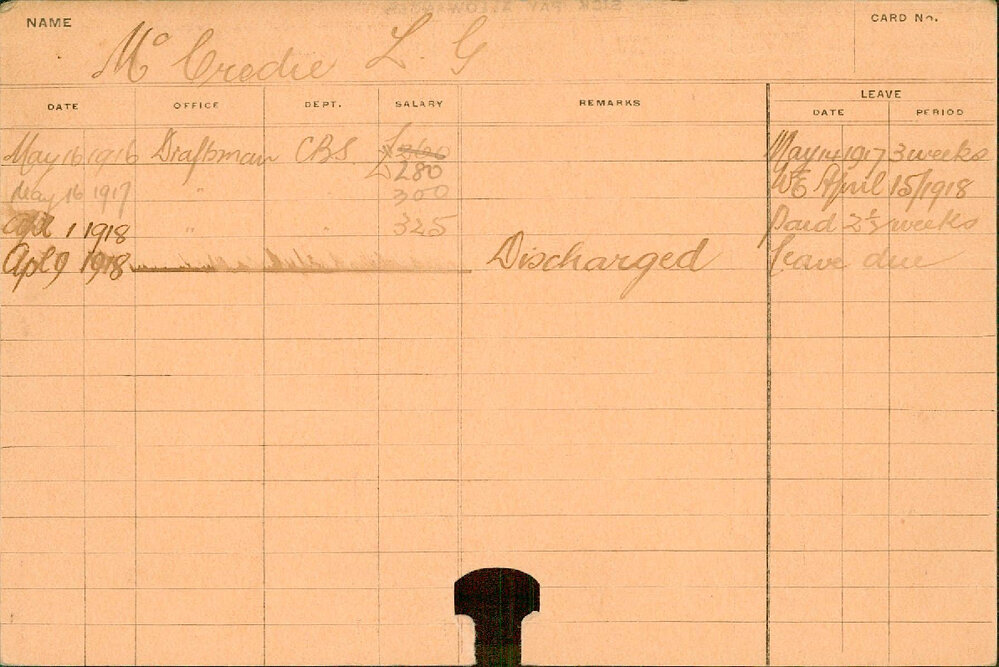 NAME
CARD No.
Mc Credie L. G
DATE OFFICE DEPT. SALARY REMARKS LEAVE
DATE PERIOD
May 16 1916 Draftsman CBS. £260 May 14 1917 3 weeks
£280 WE April 15/1918
May 16 1917 " 300
Apl 1 1918 " " 325 Paid 2½ weeks
Apl 9 1918 Discharged leave due